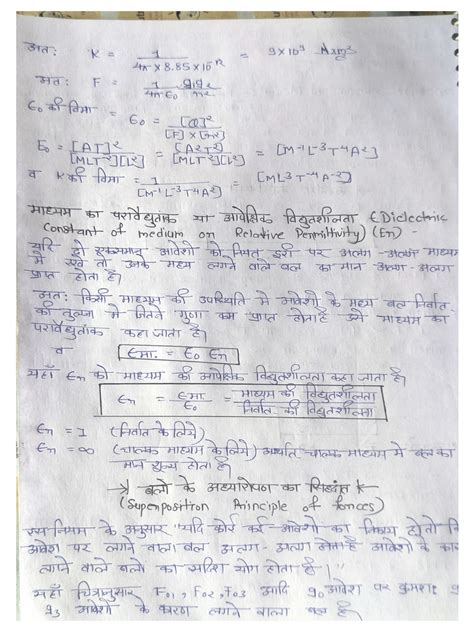 अतः K = 1/4π×8.85×10^12 = 9×10^9 N×m²/c²
अतः F = 1/4πϵ₀ q₁q₂/r²
ϵ₀ की विमा = ϵ₀ = [Q]²/[F]×[r²]
ϵ₀ = [AT]²/[MLT⁻²][L²] = [A²T²]/[MLT⁻²][L²] = [M⁻¹L⁻³T⁴A²]
व K की विमा = 1/[M⁻¹L⁻³T⁴A²] = [ML³T⁻⁴A⁻²]
माध्यम का परावैद्युतांक या आपेक्षिक विद्युतशीलता (Dielectric
Constant of medium on Relative Permittivity) (ϵr) -
यदि दो एकसमान आवेशों को नियत दूरी पर अलग-अलग माध्यम
में रखें तो उनके मध्य लगने वाले बल का मान अलग-अलग
प्राप्त होता है।
अतः किसी माध्यम की उपस्थिति में आवेशों के मध्य बल निर्वात
की तुलना में जितने गुणा कम प्राप्त होता है उसे माध्यम का
परावैद्युतांक कहा जाता है।
व ϵमा. = ϵ₀ ϵr
यहाँ ϵr को माध्यम की आपेक्षिक विद्युतशीलता कहा जाता है।
ϵr = ϵमा./ϵ₀ = माध्यम की विद्युतशीलता/निर्वात की विद्युतशीलता
ϵr = 1 (निर्वात के लिये)
ϵr = ∞ (चालक माध्यम के लिये) अर्थात् चालक माध्यम में बल का
मान शून्य होता है।
→ बलों के अध्यारोपण का सिद्धांत
(Superposition Principle of forces)
इस नियम के अनुसार "यदि कोई कई आवेशों का निकाय हो तो
आवेश पर लगने वाला बल अलग-अलग होता है आवेशों के
लगने वाले बलों का सदिश योग होता है।"
यहाँ चित्रानुसार F₀₁, F₀₂, F₀₃ आदि q₀ आवेश पर क्रमशः
q₃ आवेशों के कारण लगने वाला बल है।